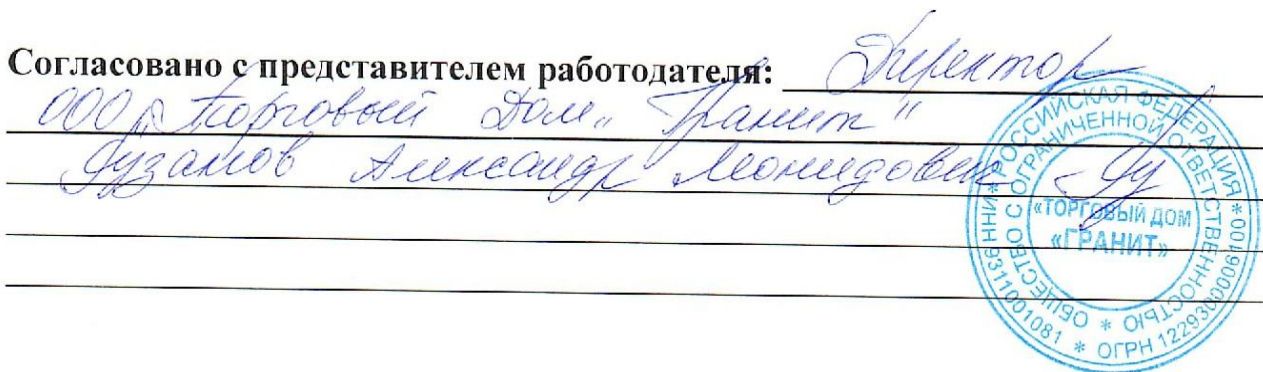 Согласовано с представителем работодателя: Директор
ООО "Торговый Дом "Гранит"
Лузанов Александр Леонидович
* РОССИЙСКАЯ ФЕДЕРАЦИЯ *
ОБЩЕСТВО С ОГРАНИЧЕННОЙ ОТВЕТСТВЕННОСТЬЮ *
«ТОРГОВЫЙ ДОМ
«ГРАНИТ»
ИНН 9311001081 * ОГРН 1229300009100